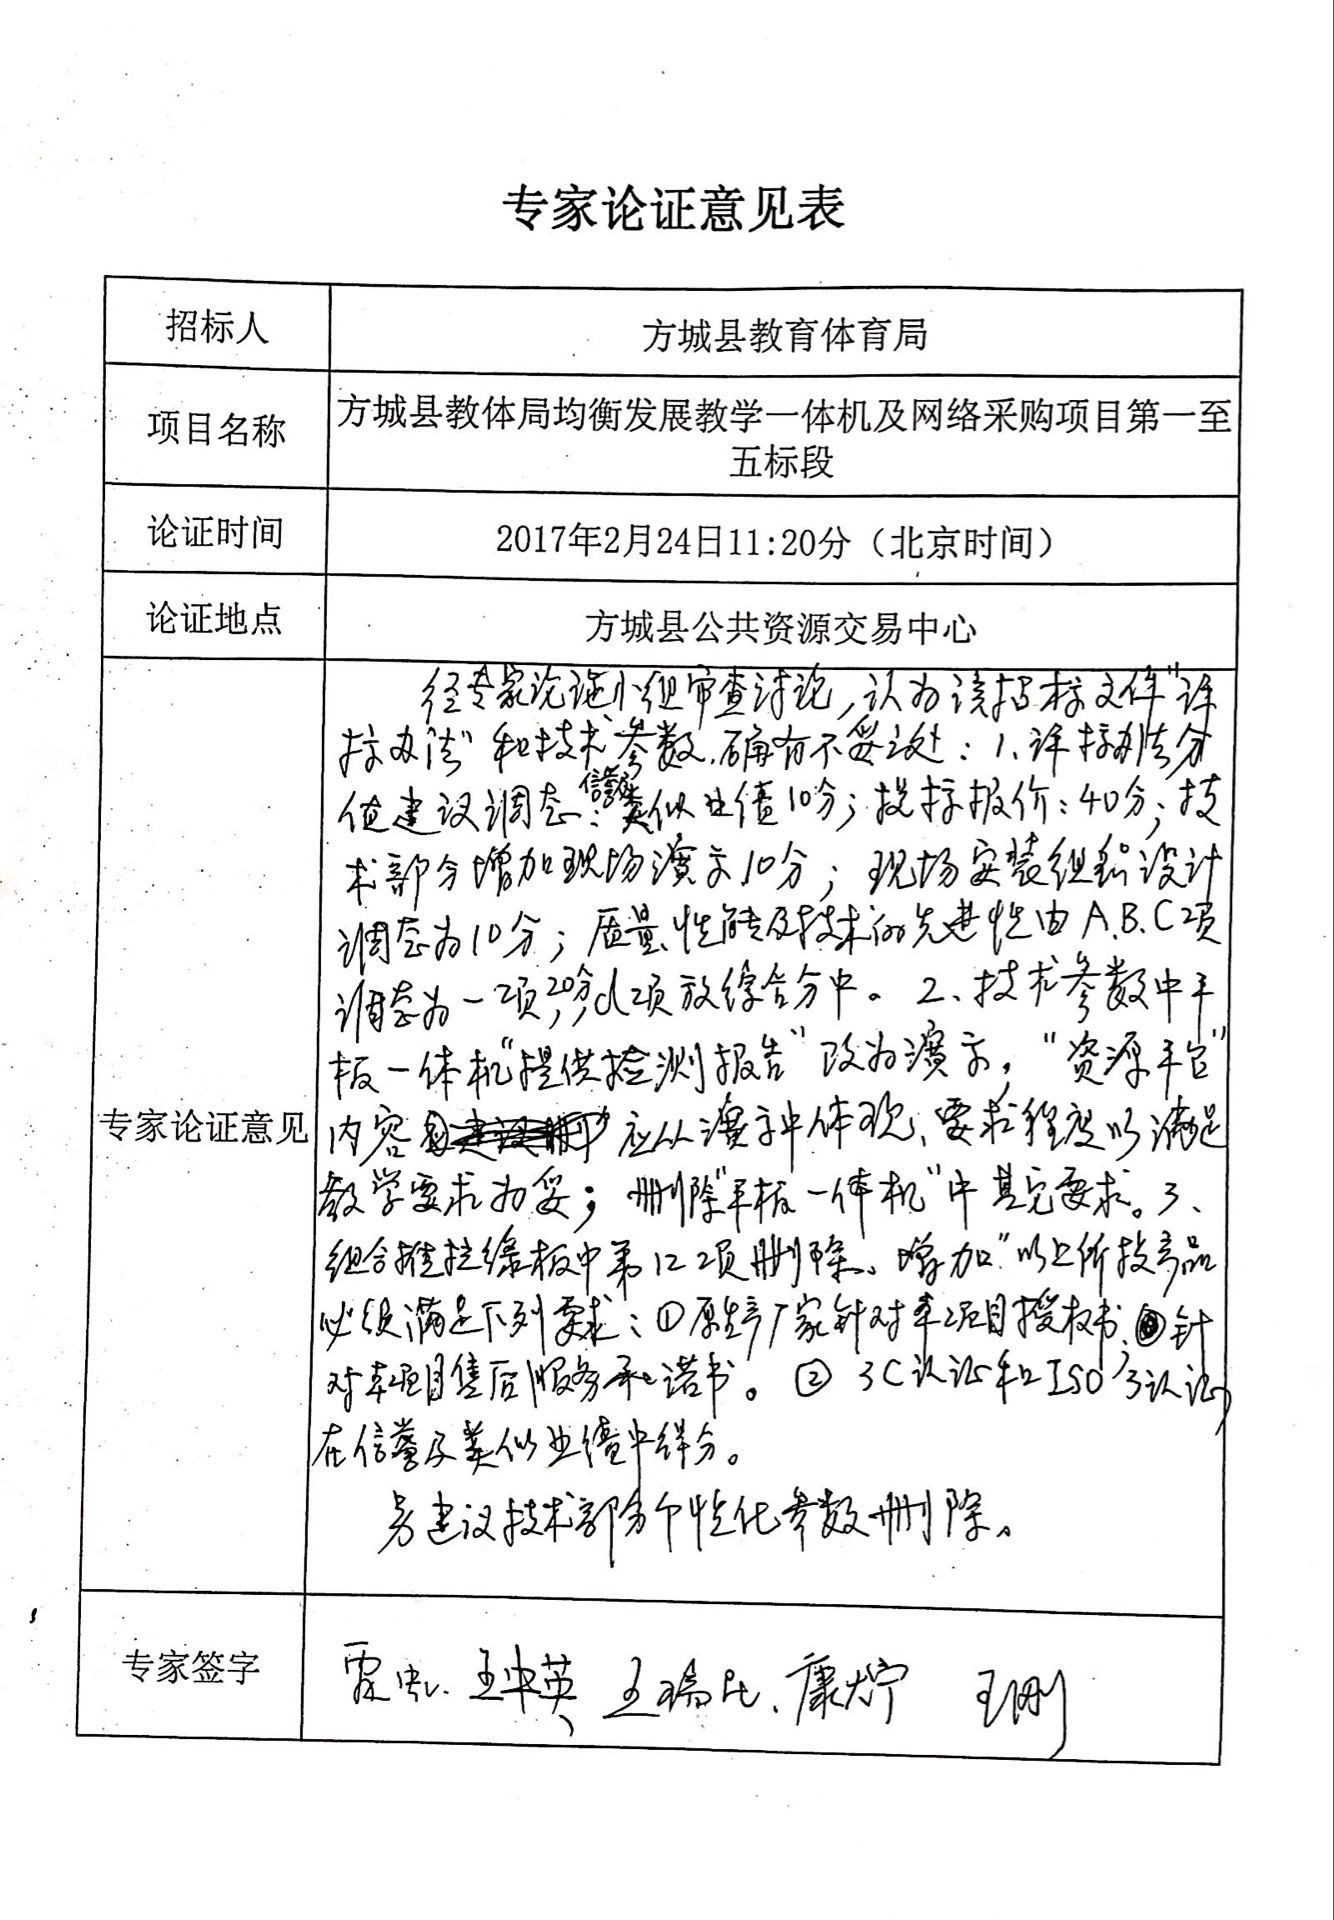 专家论证意见表
招标人
方城县教育体育局
项目名称
方城县教体局均衡发展教学一体机及网络采购项目第一至
五标段
论证时间
2017年2月24日11:20分（北京时间）
论证地点
方城县公共资源交易中心
专家论证意见
经专家论证小组审查讨论,认为该招标文件"评
标办法"和技术参数,确有不妥之处:1、评标办法分
值建议调态:信誉及类似业绩10分;投标报价:40分;技
术部分增加现场演示10分;现场安装组织设计
调态为10分;质量、性能及技术的先进性由A、B、C项
调态为一项,20分;d项放综合分中。2、技术参数中平
板一体机"提供检测报告"改为演示,"资源平台"
内容应从演示中体现、要求程度以满足
教学要求为妥;删除"平板一体机"中其它要求。3、
组合推拉绿板中第12项删除。增加"以上所投产品
必须满足下列要求:①原生产厂家针对本项目授权书、针
对本项目售后服务承诺书。②3C认证和ISO'3认证
在信誉及类似业绩中得分。
另建议技术部分个性化参数删除。
专家签字
王中英
康大宁
王刚